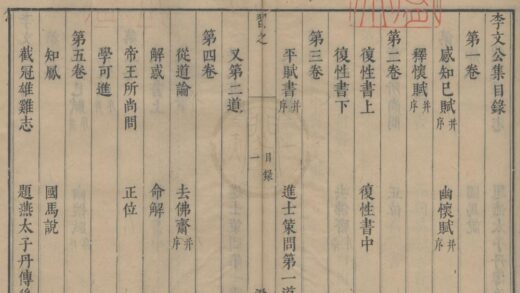 李文公集目錄
第一卷
感知己賦并序 幽懷賦并序
釋懷賦并序
第二卷
復性書上 復性書中
復性書下
第三卷
平賦書并序 進士策問第一道
習之 目錄 一
又第二道
第四卷
從道論 去佛齋并序
解惑 命解
帝王所尚問 正位
學可進
第五卷
知鳳 國馬說
截冠雄雞志 題燕太子丹傳後